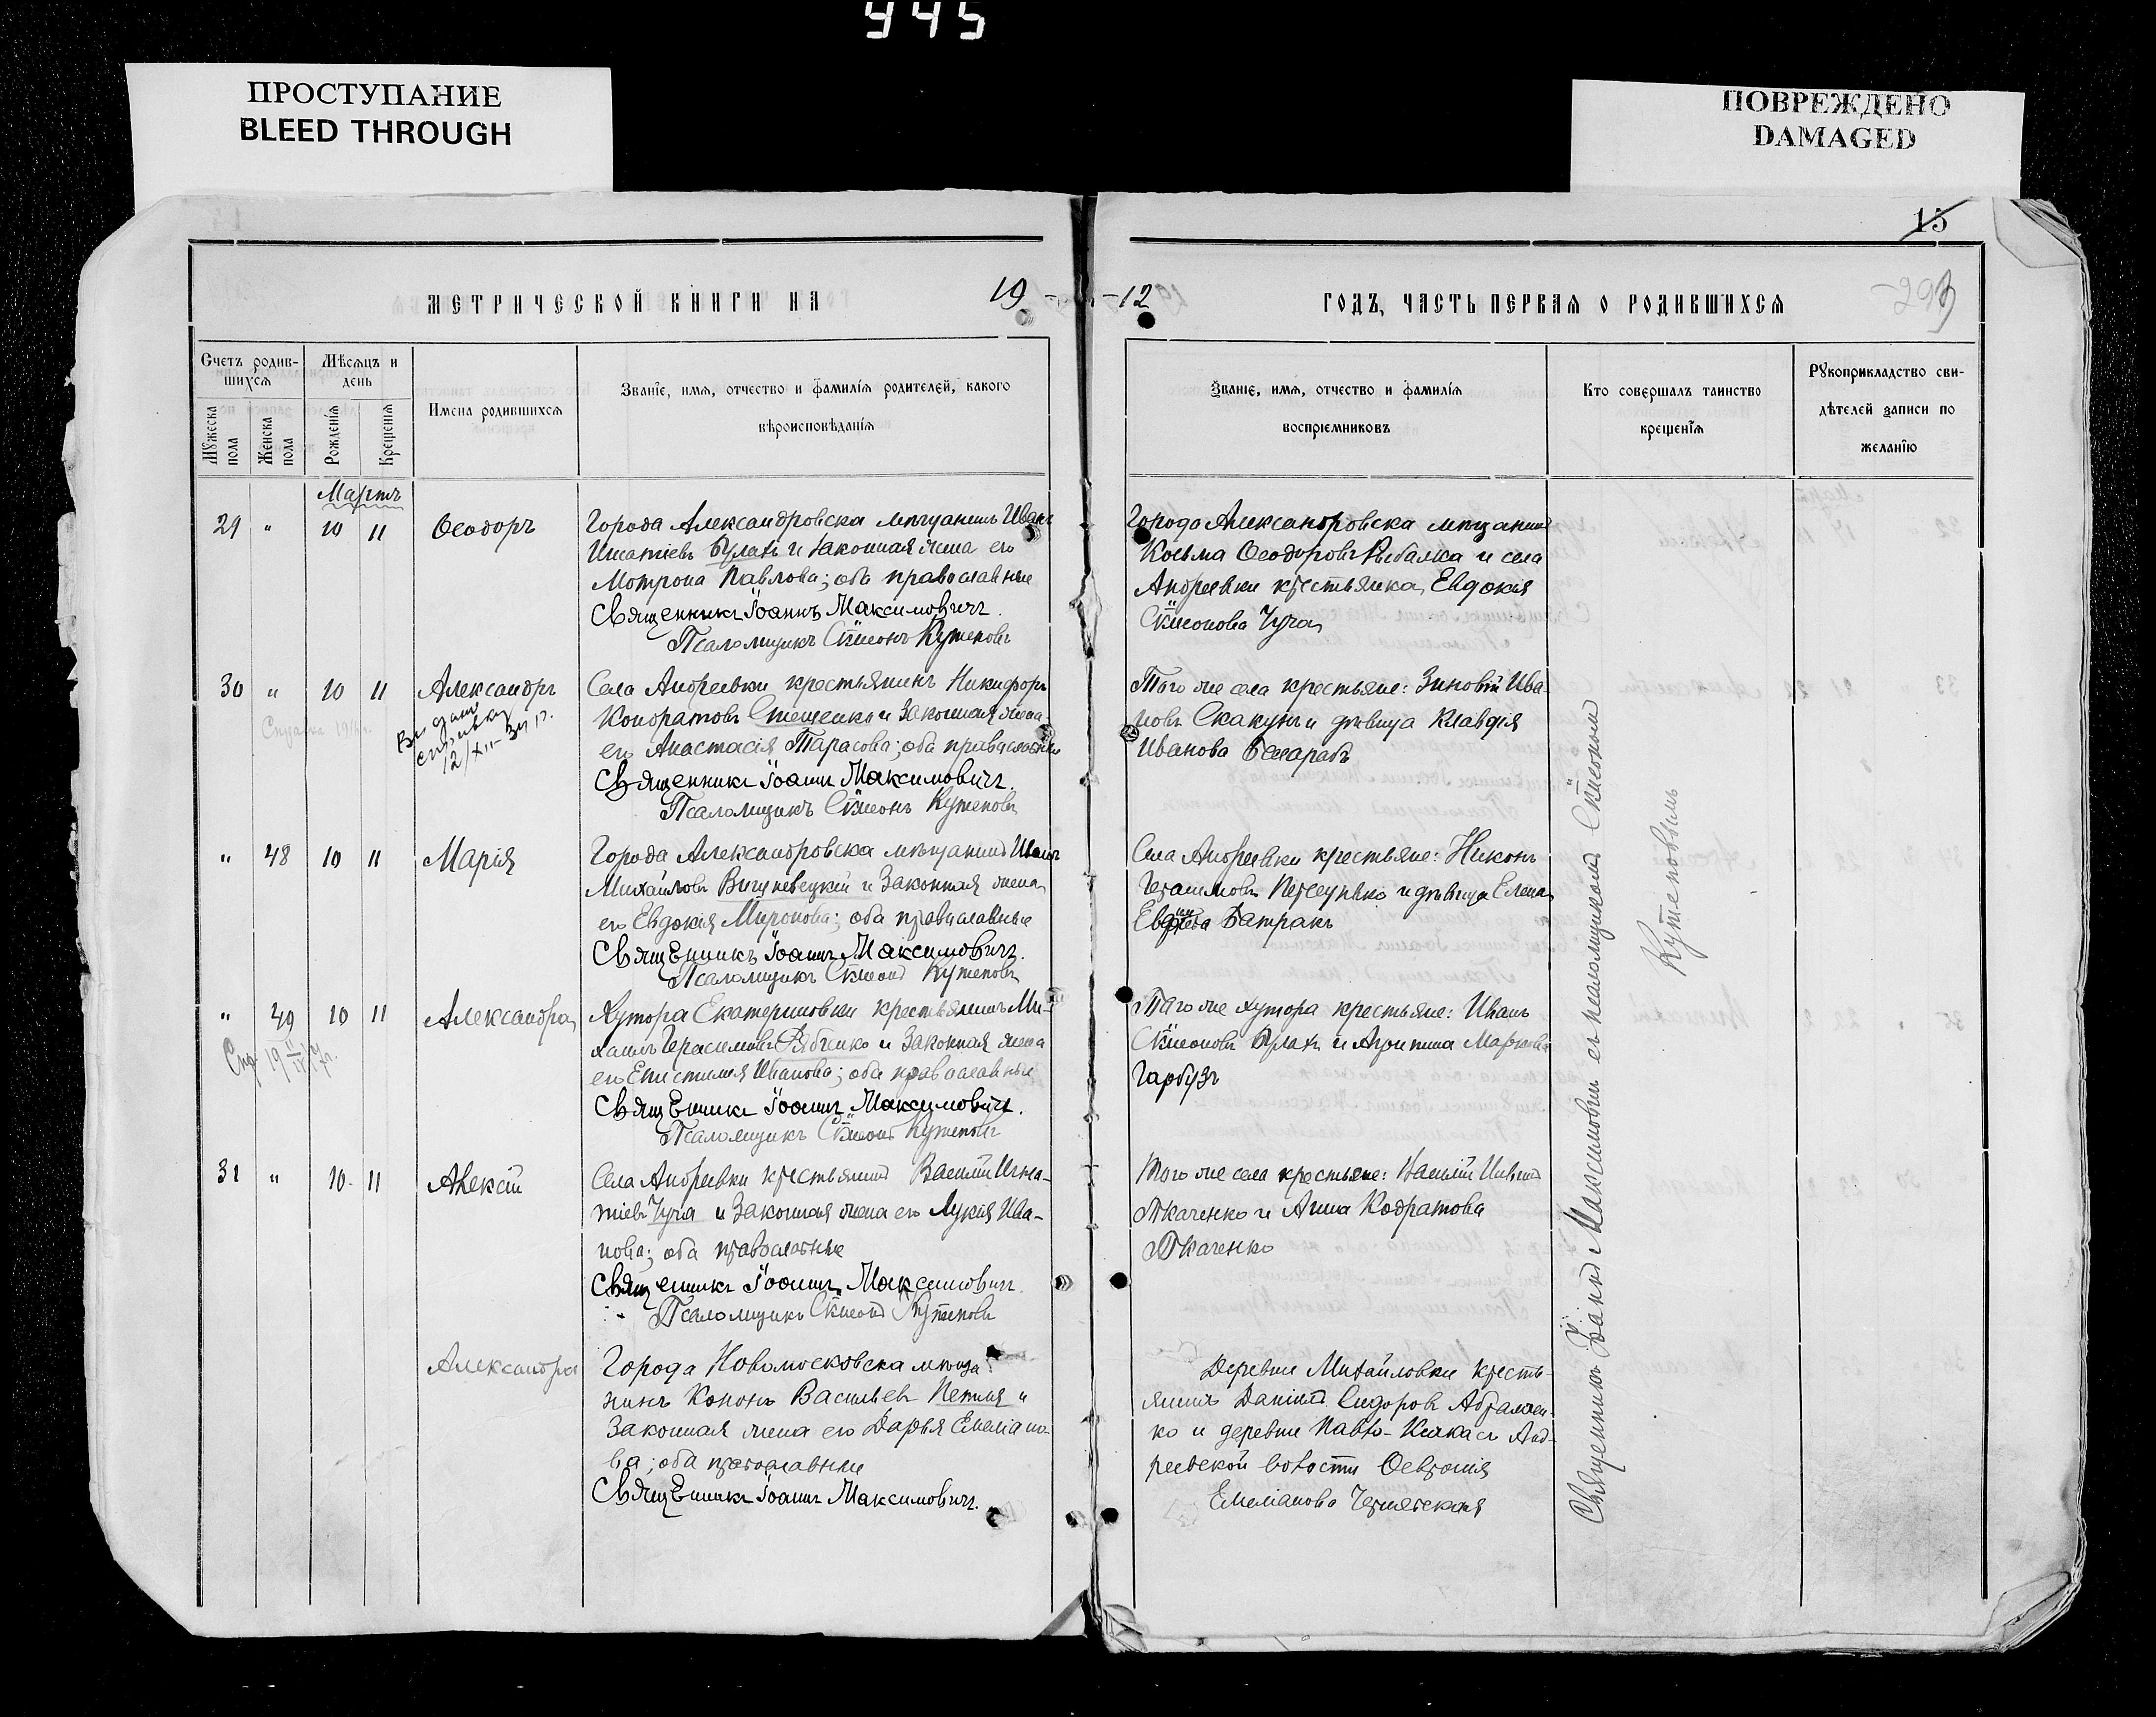 945
ПРОСТУПАНИЕ
BLEED THROUGH
ПОВРЕЖДЕНО
DAMAGED
15
МЕТРИЧЕСКОЙ КНИГИ НА 19
Счетъ родив-
шихся
Мѣсяцъ и
день
Мужеска
пола
Женска
пола
Рожденія
Крещенія
Имена родившихся
Званіе, имя, отчество и фамилія родителей, какого
вѣроисповѣданія
Мартъ
29 " 10 11 Ѳеодоръ
Города Александровска мѣщанинъ Иванъ
Игнатіевъ Бурлакъ и законная жена его
Мотрона Павлова; оба православные
Священникъ Іоаннъ Максимовичъ.
Псаломщикъ Сѵмеонъ Кутеповъ
30 " 10 11 Александръ
Выдана
справка
12/XII-34 г.
Села Андреевки крестьянинъ Никифоръ
Кондратовъ Стеценко и законная жена
его Анастасія Тарасова; оба православные
Священникъ Іоаннъ Максимовичъ.
Псаломщикъ Сѵмеонъ Кутеповъ
" 48 10 11 Марія
Города Александровска мѣщанинъ Иванъ
Михайловъ Вишневецкій и законная жена
его Евдокія Миронова; оба православные
Священникъ Іоаннъ Максимовичъ.
Псаломщикъ Сѵмеонъ Кутеповъ
" 49 10 11 Александра
Хутора Екатериновки крестьянинъ Ми-
хаилъ Герасимовъ Рябченко и законная жена
его Епистимія Иванова; оба православные
Священникъ Іоаннъ Максимовичъ.
Псаломщикъ Сѵмеонъ Кутеповъ
31 " 10 11 Алексій
Села Андреевки крестьянинъ Василій Игна-
тіевъ Чуча и законная жена его Лукія Ива-
нова; оба православные
Священникъ Іоаннъ Максимовичъ.
Псаломщикъ Сѵмеонъ Кутеповъ
Александра
Города Новомосковска мѣща-
нинъ Кононъ Васильевъ и
законная жена его Дарья Емеліано-
ва; оба православные
Священникъ Іоаннъ Максимовичъ.
12 ГОДЪ, ЧАСТЬ ПЕРВАЯ О РОДИВШИХСЯ
293
Званіе, имя, отчество и фамилія
воспріемниковъ
Кто совершалъ таинство
крещенія
Рукоприкладство сви-
дѣтелей записи по
желанію
Города Александровска мѣщанинъ
Косьма Ѳеодоровъ Рыбалка и села
Андреевки крестьянка Евдокія
Сѵмеонова Чуча
Того же села крестьяне: Зиновій Ива-
новъ Скакунъ и дѣвица Клавдія
Иванова Басарабъ
Села Андреевки крестьяне: Никонъ
Герасимовъ и дѣвица Елена
Батракъ
Того же хутора крестьяне: Иванъ
Сѵмеоновъ Бурлакъ и Агрипина Маркова
Гарбузъ
Того же села крестьяне: Василій
Ткаченко и Анна Кодратова
Ткаченко
Деревни Михайловки кресть-
янинъ Даніилъ Сидоровъ Абрамен-
ко и деревни Павло-Кичкасъ Анд-
реевской волости Ѳевронія
Емеліанова Чернявская
Священникъ Іоаннъ Максимовичъ съ псаломщикомъ Сѵмеономъ
Кутеповымъ